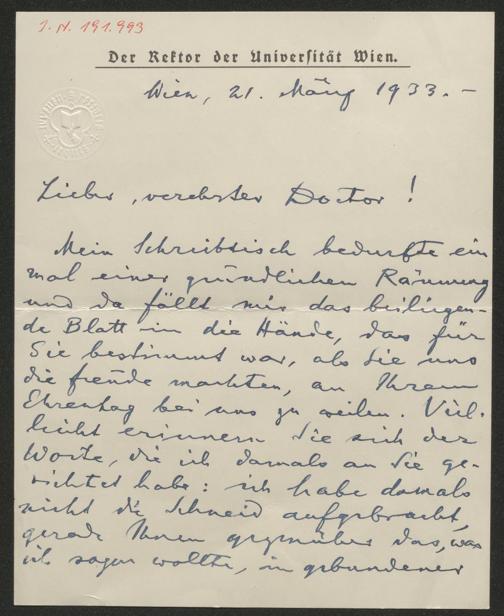 J. N. 191.993
Der Rektor der Universität Wien.
Wien, 21. März 1933. –
Lieber, verehrter Doctor!
Mein Schreibtisch bedurfte ein
mal einer gründlichen Räumung
und da fällt mir das beiliegen-
de Blatt in die Hände, das für
Sie bestimmt war, als Sie uns
die Freude machten, an Ihrem
Ehrentag bei uns zu weilen. Viel-
leicht erinnern Sie sich der
Worte, die ich damals an Sie ge-
richtet habe: ich habe damals
nicht die Schneid aufgebracht,
gerade Ihnen gegenüber das, was
ich sagen wollte, in gebundener